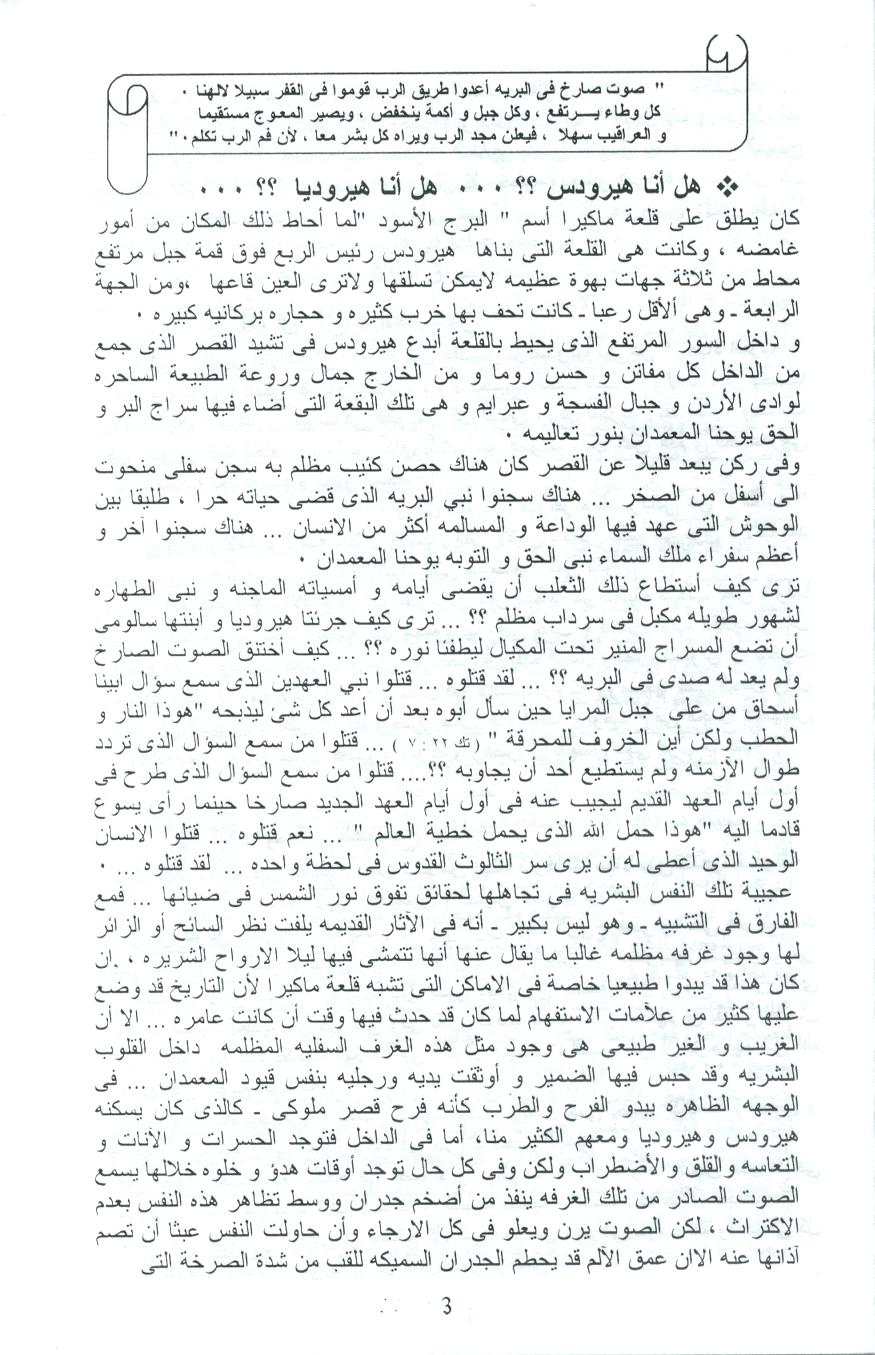 " صوت صارخ فى البريه أعدوا طريق الرب قوموا فى القفر سبيلا لالهنا .
كل وطاء يـرتفع ، وكل جبل و أكمة ينخفض ، ويصير المعوج مستقيما
و العراقيب سهلا ، فيعلن مجد الرب ويراه كل بشر معا ، لأن فم الرب تكلم . "
❖ هل أنا هيرودس ؟؟ ... هل أنا هيروديا ؟؟ ...
كان يطلق على قلعة ماكيرا أسم " البرج الأسود "لما أحاط ذلك المكان من أمور
غامضه ، وكانت هى القلعة التى بناها هيرودس رئيس الربع فوق قمة جبل مرتفع
محاط من ثلاثة جهات بهوة عظيمه لايمكن تسلقها ولاترى العين قاعها ،ومن الجهة
الرابعة - وهى ألأقل رعبا - كانت تحف بها خرب كثيره و حجاره بركانيه كبيره .
و داخل السور المرتفع الذى يحيط بالقلعة أبدع هيرودس فى تشيد القصر الذى جمع
من الداخل كل مفاتن و حسن روما و من الخارج جمال وروعة الطبيعة الساحره
لوادى الأردن و جبال الفسجة و عبرايم و هى تلك البقعة التى أضاء فيها سراج البر و
الحق يوحنا المعمدان بنور تعاليمه .
وفى ركن يبعد قليلا عن القصر كان هناك حصن كئيب مظلم به سجن سفلى منحوت
الى أسفل من الصخر ... هناك سجنوا نبي البريه الذى قضى حياته حرا ، طليقا بين
الوحوش التى عهد فيها الوداعة و المسالمه أكثر من الانسان ... هناك سجنوا آخر و
أعظم سفراء ملك السماء نبى الحق و التوبه يوحنا المعمدان .
ترى كيف أستطاع ذلك الثعلب أن يقضى أيامه و أمسياته الماجنه و نبى الطهاره
لشهور طويله مكبل فى سرداب مظلم ؟؟ ... ترى كيف جرئتا هيروديا و أبنتها سالومى
أن تضع المسراج المنير تحت المكيال ليطفئا نوره ؟؟ ... كيف أختنق الصوت الصارخ
ولم يعد له صدى فى البريه ؟؟ ... لقد قتلوه ... قتلوا نبي العهدين الذى سمع سؤال ابينا
أسحاق من على جبل المرايا حين سأل أبوه بعد أن أعد كل شئ ليذبحه "هوذا النار و
الحطب ولكن أين الخروف للمحرقة " (تك ٢٢ : ٧ ) ... قتلوا من سمع السؤال الذى تردد
طوال الأزمنه ولم يستطيع أحد أن يجاوبه ؟؟.... قتلوا من سمع السؤال الذى طرح فى
أول أيام العهد القديم ليجيب عنه فى أول أيام العهد الجديد صارخا حينما رأى يسوع
قادما اليه "هوذا حمل الله الذى يحمل خطية العالم " ... نعم قتلوه ... قتلوا الانسان
الوحيد الذى أعطى له أن يرى سر الثالوث القدوس فى لحظة واحده ... لقد قتلوه ... .
عجيبة تلك النفس البشريه فى تجاهلها لحقائق تفوق نور الشمس فى ضيائها ... فمع
الفارق فى التشبيه - وهو ليس بكبير - أنه فى الآثار القديمه يلفت نظر السائح أو الزائر
لها وجود غرفه مظلمه غالبا ما يقال عنها أنها تتمشى فيها ليلا الارواح الشريره ، إن
كان هذا قد يبدوا طبيعيا خاصة فى الاماكن التى تشبه قلعة ماكيرا لأن التاريخ قد وضع
عليها كثير من علآمات الاستفهام لما كان قد حدث فيها وقت أن كانت عامره ... الا أن
الغريب و الغير طبيعى هى وجود مثل هذه الغرف السفليه المظلمه داخل القلوب
البشريه وقد حبس فيها الضمير و أوثقت يديه ورجليه بنفس قيود المعمدان ... فى
الوجهه الظاهره يبدو الفرح والطرب كأنه فرح قصر ملوكى - كالذى كان يسكنه
هيرودس وهيروديا ومعهم الكثير منا، أما فى الداخل فتوجد الحسرات و الآنات و
التعاسه والقلق والأضطراب ولكن وفى كل حال توجد أوقات هدؤ و خلوه خلالها يسمع
الصوت الصادر من تلك الغرفه ينفذ من أضخم جدران ووسط تظاهر هذه النفس بعدم
الاكتراث ، لكن الصوت يرن ويعلو فى كل الارجاء وأن حاولت النفس عبثا أن تصم
آذانها عنه الاان عمق الآلم قد يحطم الجدران السميكه للقب من شدة الصرخة التى
3